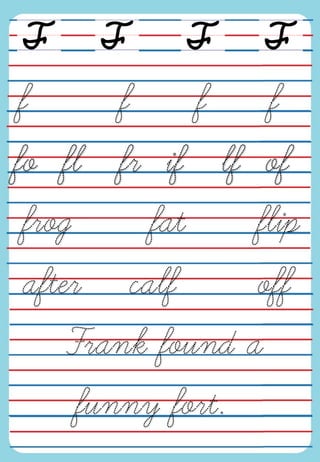 F F F F
f f f f
fo fl fr if lf of
frog fat flip
after calf off
Frank found a
funny fort.